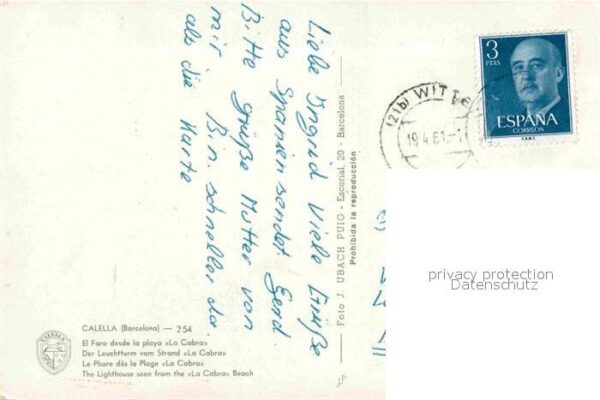 Liebe Ingrid Viele Grüße
aus Spanien sendet Gerd.
Bitte grüße Mutter von
mir B.n. schneller da
als die Karte
CALELLA (Barcelona) — 254
El Faro desde la playa «La Cabra»
Der Leuchtturm vom Strand «La Cabra»
Le Phare dés la Plage «La Cabra»
The Lighthouse seen from the «La Cabra» Beach
CALELLA
Foto J. UBACH PUIG - Escorial, 20 - Barcelona
Prohibida la reproducción
(21b) WITTE
19.4.61.-1
3
PTAS
ESPAÑA
CORREOS
privacy protection
Datenschutz